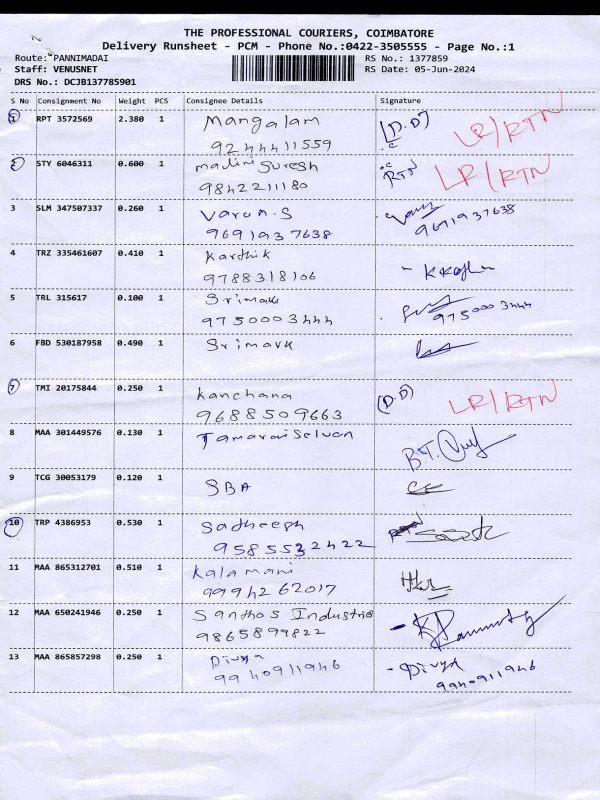 THE PROFESSIONAL COURIERS, COIMBATORE
Delivery Runsheet - PCM - Phone No.:0422-3505555 - Page No.:1
Route:"PANNIMADAI
RS No.: 1377859
Staff: VENUSNET
RS Date: 05-Jun-2024
DRS No.: DCJB137785901
S No Consignment No Weight PCS Consignee Details Signature
1 RPT 3572569 2.380 1 Mangalam (D.D) LR/RTN
9244411559
2 STY 6046311 0.600 1 malini Suresh RTN LR/RTN
9842211180
3 SLM 347507337 0.260 1 Varun.S
9691937638 9691937638
4 TRZ 335461607 0.410 1 Karthik
9788318106
5 TRL 315617 0.100 1 Srimark
9750003444 9750003444
6 FBD 530187958 0.490 1 Srimark
7 TMI 20175844 0.250 1 Kanchana (D.D) LR/RTN
9688509663
8 MAA 301449576 0.130 1 Tamarai Selvan B.T.
9 TCG 30053179 0.120 1 SBA
10 TRP 4386953 0.530 1 Satheesh
9585532422
11 MAA 865312701 0.510 1 Kalamani
9994262017
12 MAA 650241946 0.250 1 Santhos Industries
9865899822
13 MAA 865857298 0.250 1 Divya - Divya
9940911946 9940911946